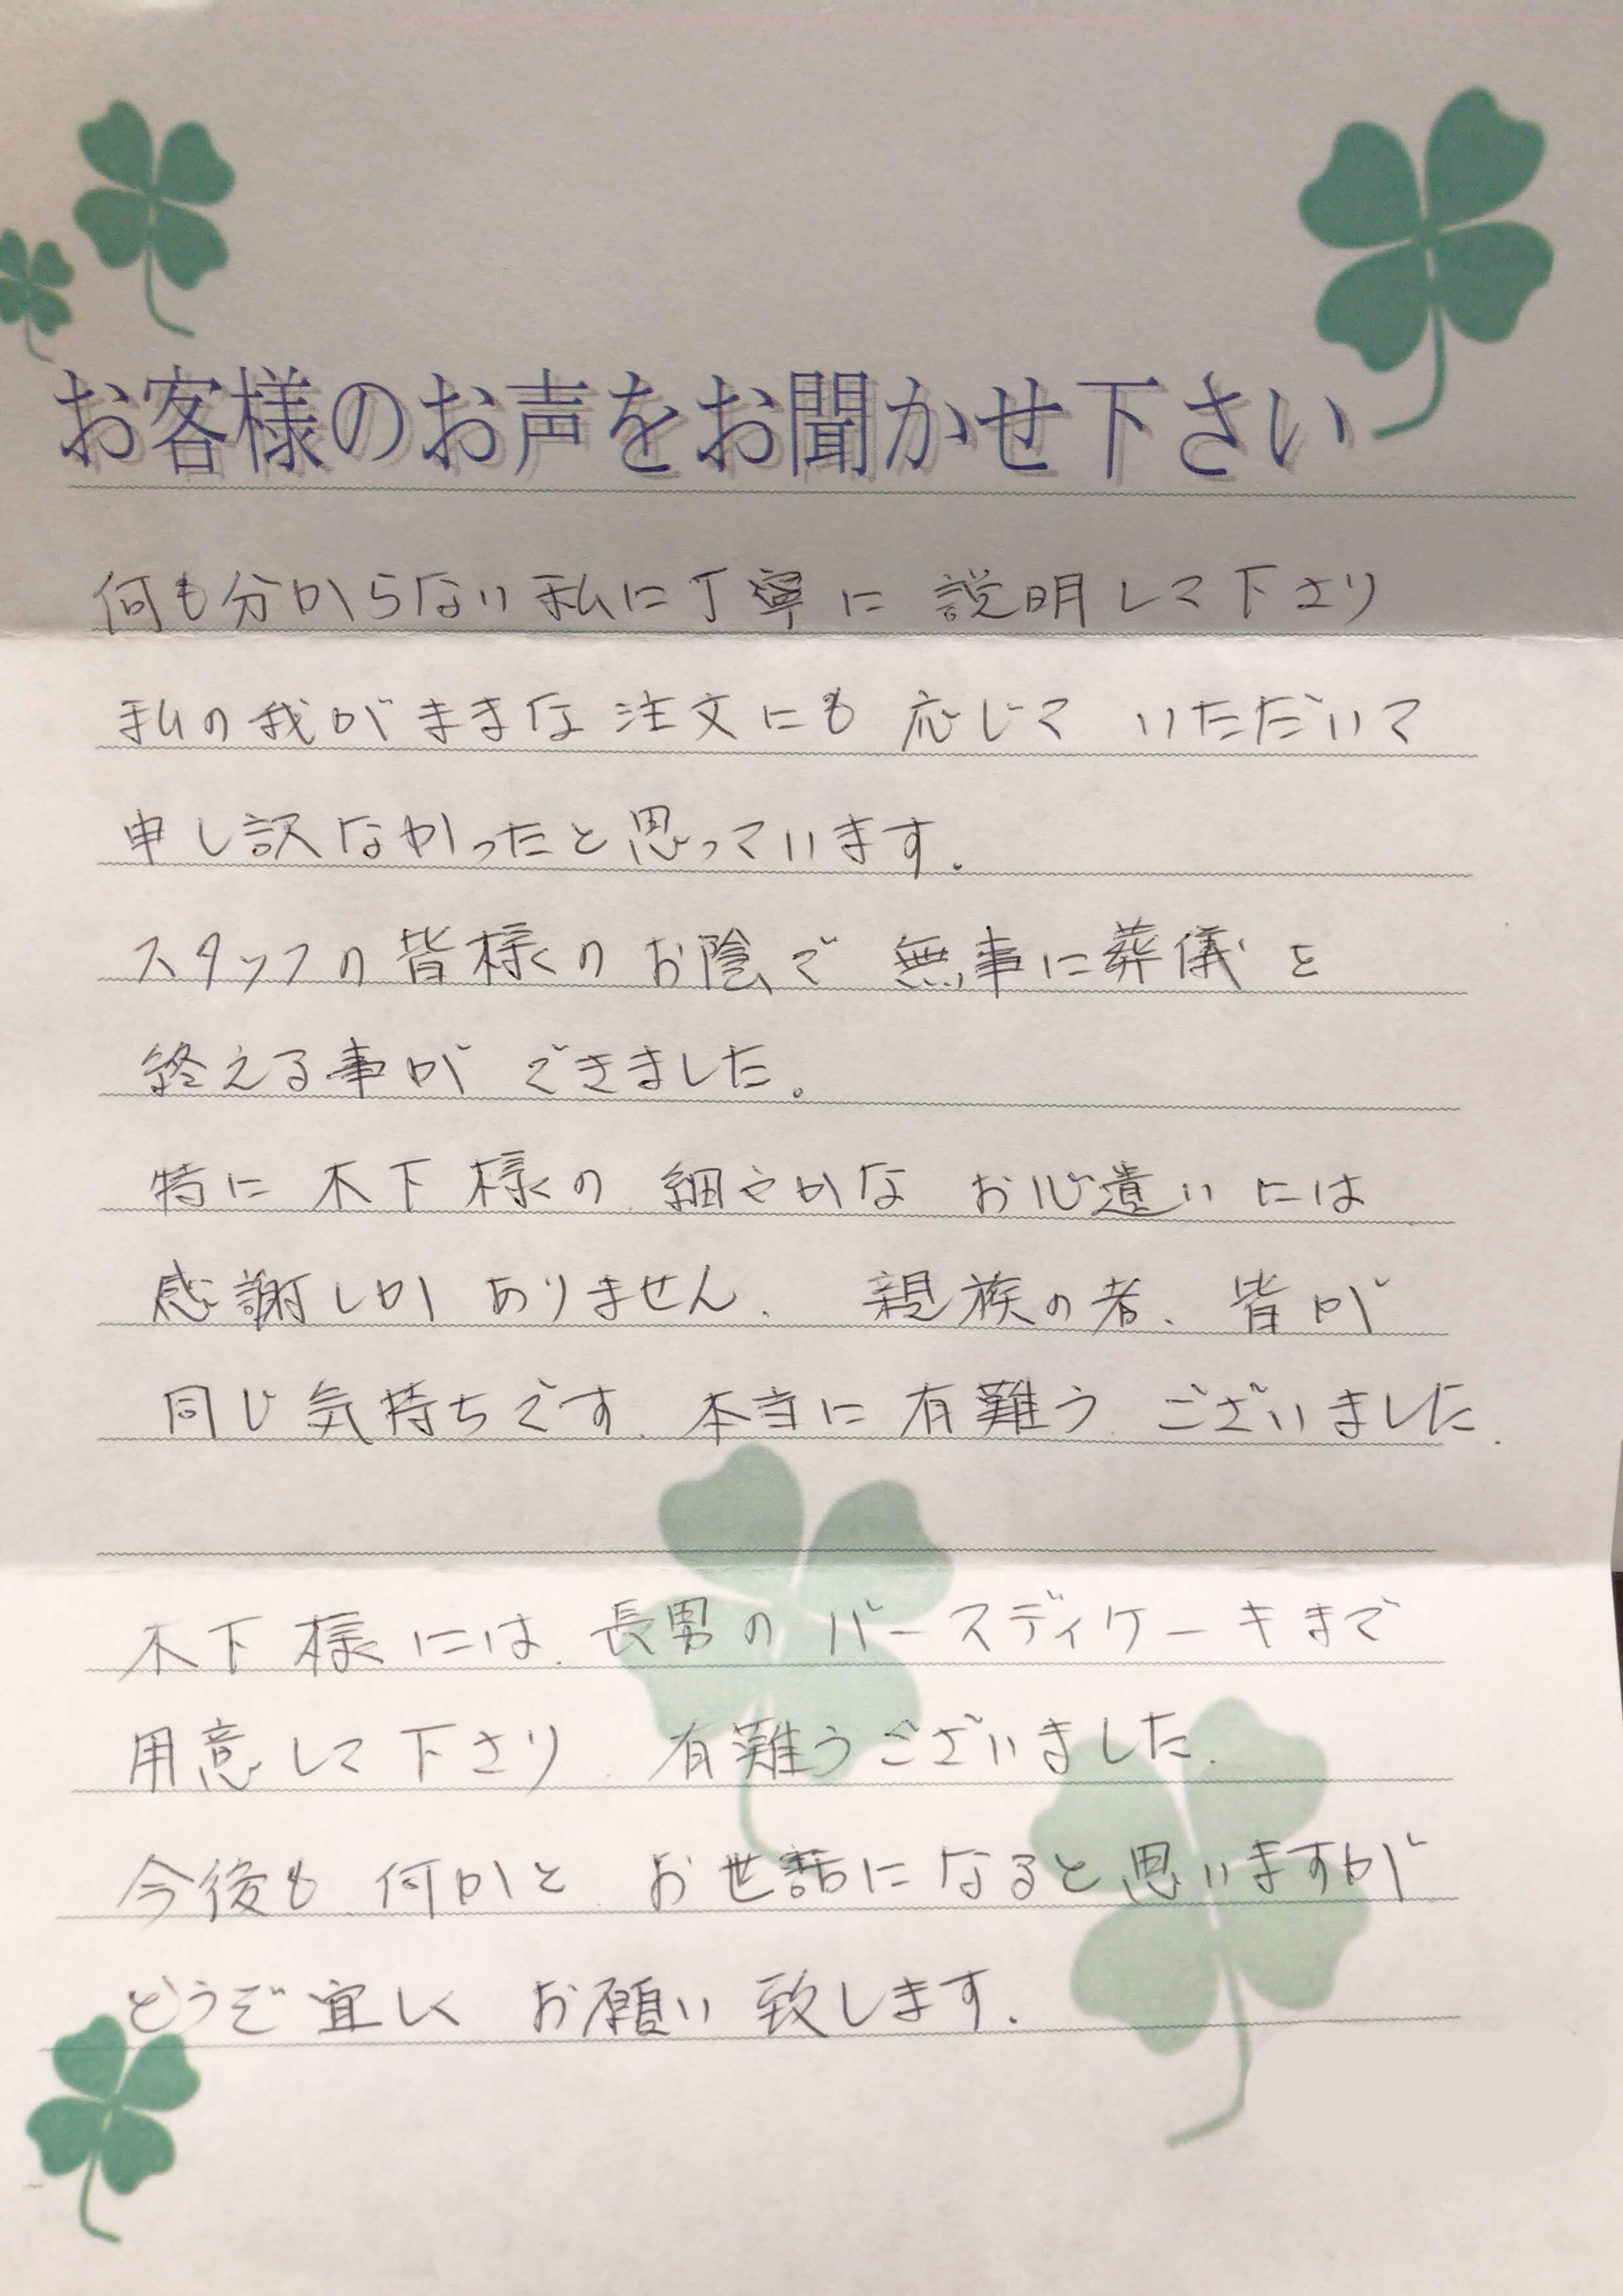 お客様のお声をお聞かせ下さい
何も分からない私に丁寧に説明して下さり
私の我がままな注文にも応じていただいて
申し訳なかったと思っています.
スタッフの皆様のお陰で無事に葬儀を
終える事ができました。
特に木下様の細やかなお心遣いには
感謝しかありません. 親族の者、皆が
同じ気持ちです. 本当に有難うございました.
木下様には、長男のバースディケーキまで
用意して下さり 有難うございました.
今後も何かとお世話になると思いますが
どうぞ宜しくお願い致します.